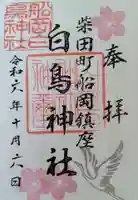 奉拝
柴田町船岡鎮座
白鳥神社
令和六年十月二六日
船岡白鳥神社